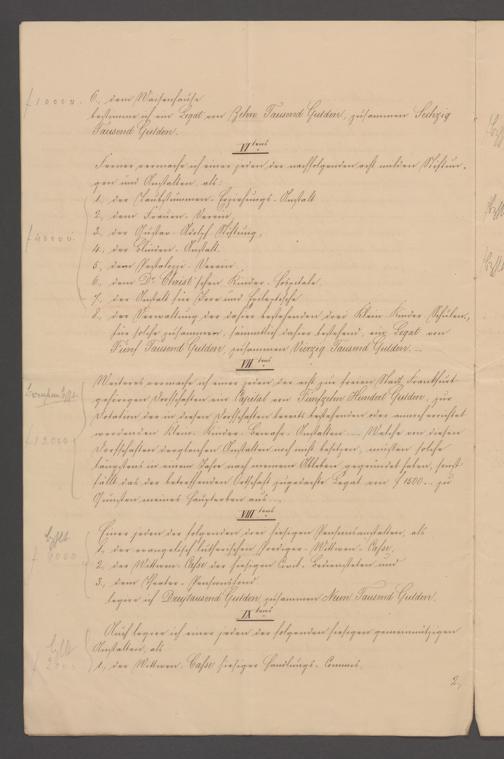 6., dem Waisenhause
bestimme ich ein Legat von Zehn Tausend Gulden, zusammen Sechzig
Tausend Gulden.
f 10000.
VI tens
Ferner vermache ich einer jeden der nachfolgenden acht milden Stiftun-
gen und Anstalten, als:
1., der Taubstummen-Erziehungs-Anstalt
2., dem Frauen-Verein,
3., der Gustav-Adolph Stiftung,
4., der Blinden-Anstalt
5., dem Pestalozzi-Verein
6., dem Dr. Christ'schen Kinder-Hospitale
7., der Anstalt für Irre und Epileptische
8., der Verwaltung der dahier bestehenden drei Klein-Kinder-Schulen,
für solche zusammen, sämmtlich dahier bestehend, ein Legat von
Fünf Tausend Gulden, zusammen Vierzig Tausend Gulden.
f 40000.
VII tens
Weiteres vermache ich einer jeden der acht zur freien Stadt Frankfurt
gehörigen Dorfschaften ein Capital von Fünfzehn Hundert Gulden, zur
Dotation der in diesen Dorfschaften bereits bestehenden oder annoch errichtet
werdenden Klein-Kinder-Bewahr-Anstalten. Welche von diesen
Dorfschaften dergleichen Anstalten noch nicht besitzen, müssen solche
längstens in einem Jahre nach meinem Ableben gegründet haben, sonst
fällt das der betreffenden Ortschaft zugedachte Legat von f 1500 zu
Gunsten meines Haupterben aus.
f 12000
VIII tens
Einer jeden der folgenden drei hiesigen Pensionsanstalten, als
1., der evangelisch lutherischen Prediger-Wittwen-Casse,
2., der Wittwen-Casse der hiesigen Civil-Bediensteten und
3., dem Theater-Pensionsfond
legire ich Dreytausend Gulden zusammen Neun Tausend Gulden.
f 9000
IX tens
Auch legire ich einer jeden der folgenden hiesigen gemeinnützigen
Anstalten, als
1., der Wittwen-Casse hiesiger Handlungs-Commis,
2.,